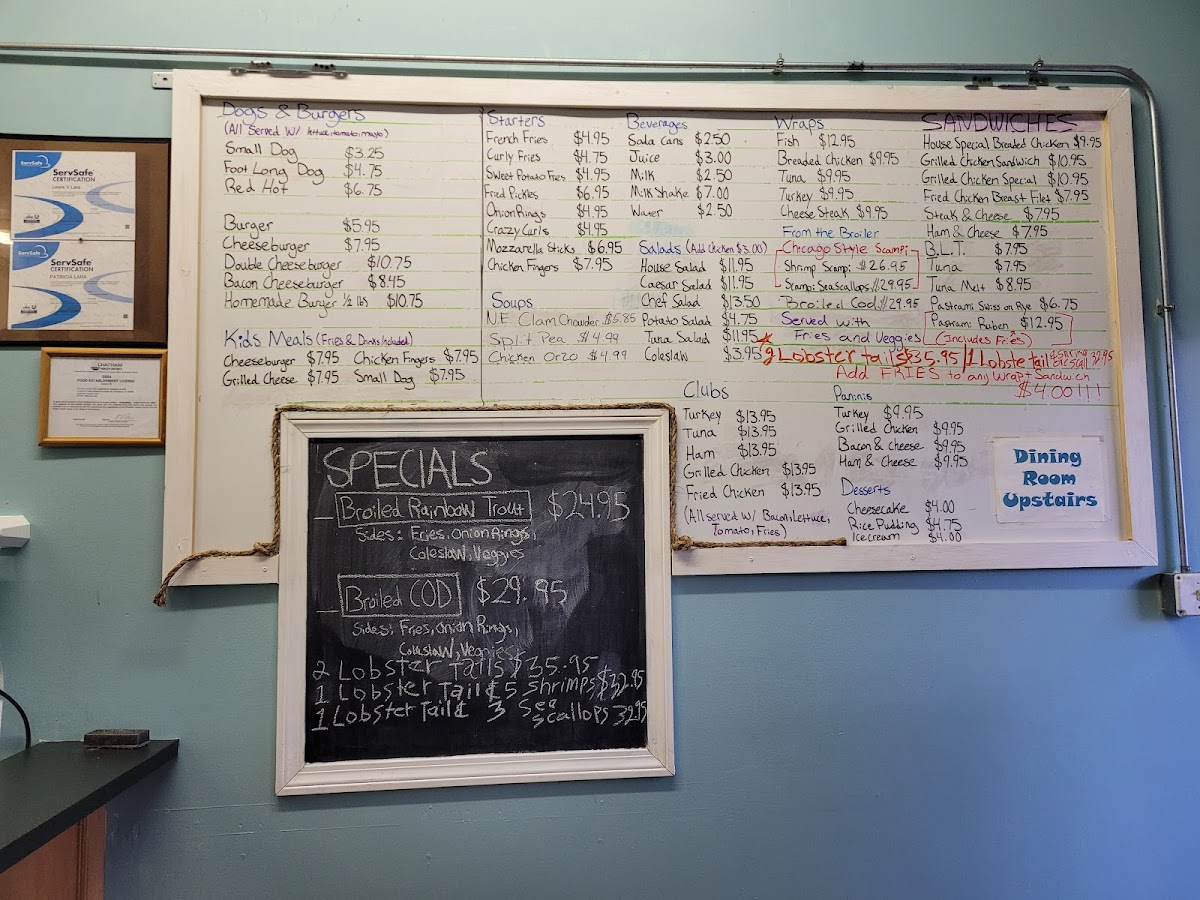 ServSafe
ServSafe
CERTIFICATION
ServSafe
ServSafe
CERTIFICATION
PATRICIA LARA
CHATHAM
2024
FOOD ESTABLISHMENT LICENSE
Dogs & Burgers
(All Served W/ lettuce, tomato, mayo)
Small Dog $3.25
Foot Long Dog $4.75
Red Hot $6.75
Burger $5.95
Cheeseburger $7.95
Double Cheeseburger $10.75
Bacon Cheeseburger $8.45
Homemade Burger ½ lbs $10.75
Kids Meals (Fries & Drinks Included)
Cheeseburger $7.95 Chicken Fingers $7.95
Grilled Cheese $7.95 Small Dog $7.95
Starters
French Fries $4.95
Curly Fries $4.75
Sweet Potato Fries $4.95
Fried Pickles $6.95
Onion Rings $4.95
Crazy Curls $4.95
Mozzarella Sticks $6.95
Chicken Fingers $7.95
Soups
N.E. Clam Chowder $5.85
Split Pea $4.99
Chicken Orzo $4.99
Beverages
Soda Cans $2.50
Juice $3.00
Milk $2.50
Milk Shake $7.00
Water $2.50
Salads (Add Chicken $3.00)
House Salad $11.95
Caesar Salad $11.95
Chef Salad $13.50
Potato Salad $4.75
Tuna Salad $11.95
Coleslaw $3.95
Wraps
Fish $12.95
Breaded Chicken $9.95
Tuna $9.95
Turkey $9.95
Cheese Steak $9.95
From the Broiler
Chicago Style Scampi
Shrimp Scampi $26.95
Scampi Sea Scallops $29.95
Broiled Cod $29.95
Served with
Fries and Veggies
2 Lobster tails $35.95 1 Lobster tail
32.95
Add FRIES to any Wrap + Sandwich
$4.00!!!
SANDWICHES
House Special Breaded Chicken $9.95
Grilled Chicken Sandwich $10.95
Grilled Chicken Special $10.95
Fried Chicken Breast Filet $7.95
Steak & Cheese $7.95
Ham & Cheese $7.95
B.L.T. $7.95
Tuna $7.95
Tuna Melt $8.95
Pastrami Swiss on Rye $6.75
Pastrami Ruben $12.95
(Includes Fries)
Clubs
Turkey $13.95
Tuna $13.95
Ham $13.95
Grilled Chicken $13.95
Fried Chicken $13.95
(All served W/ Bacon, Lettuce,
Tomato, Fries)
Paninis
Turkey $9.95
Grilled Chicken $9.95
Bacon & Cheese $9.95
Ham & Cheese $9.95
Desserts
Cheesecake $4.00
Rice Pudding $4.75
Icecream $4.00
Dining
Room
Upstairs
SPECIALS
Broiled Rainbow Trout $24.95
Sides: Fries, Onion Rings,
Coleslaw, Veggies
Broiled COD $29.95
Sides: Fries, Onion Rings,
Coleslaw, Veggies
2 Lobster Tails $35.95
1 Lobster Tail & 5 Shrimps $32.95
1 Lobster Tail & 3 Sea Scallops 32.95